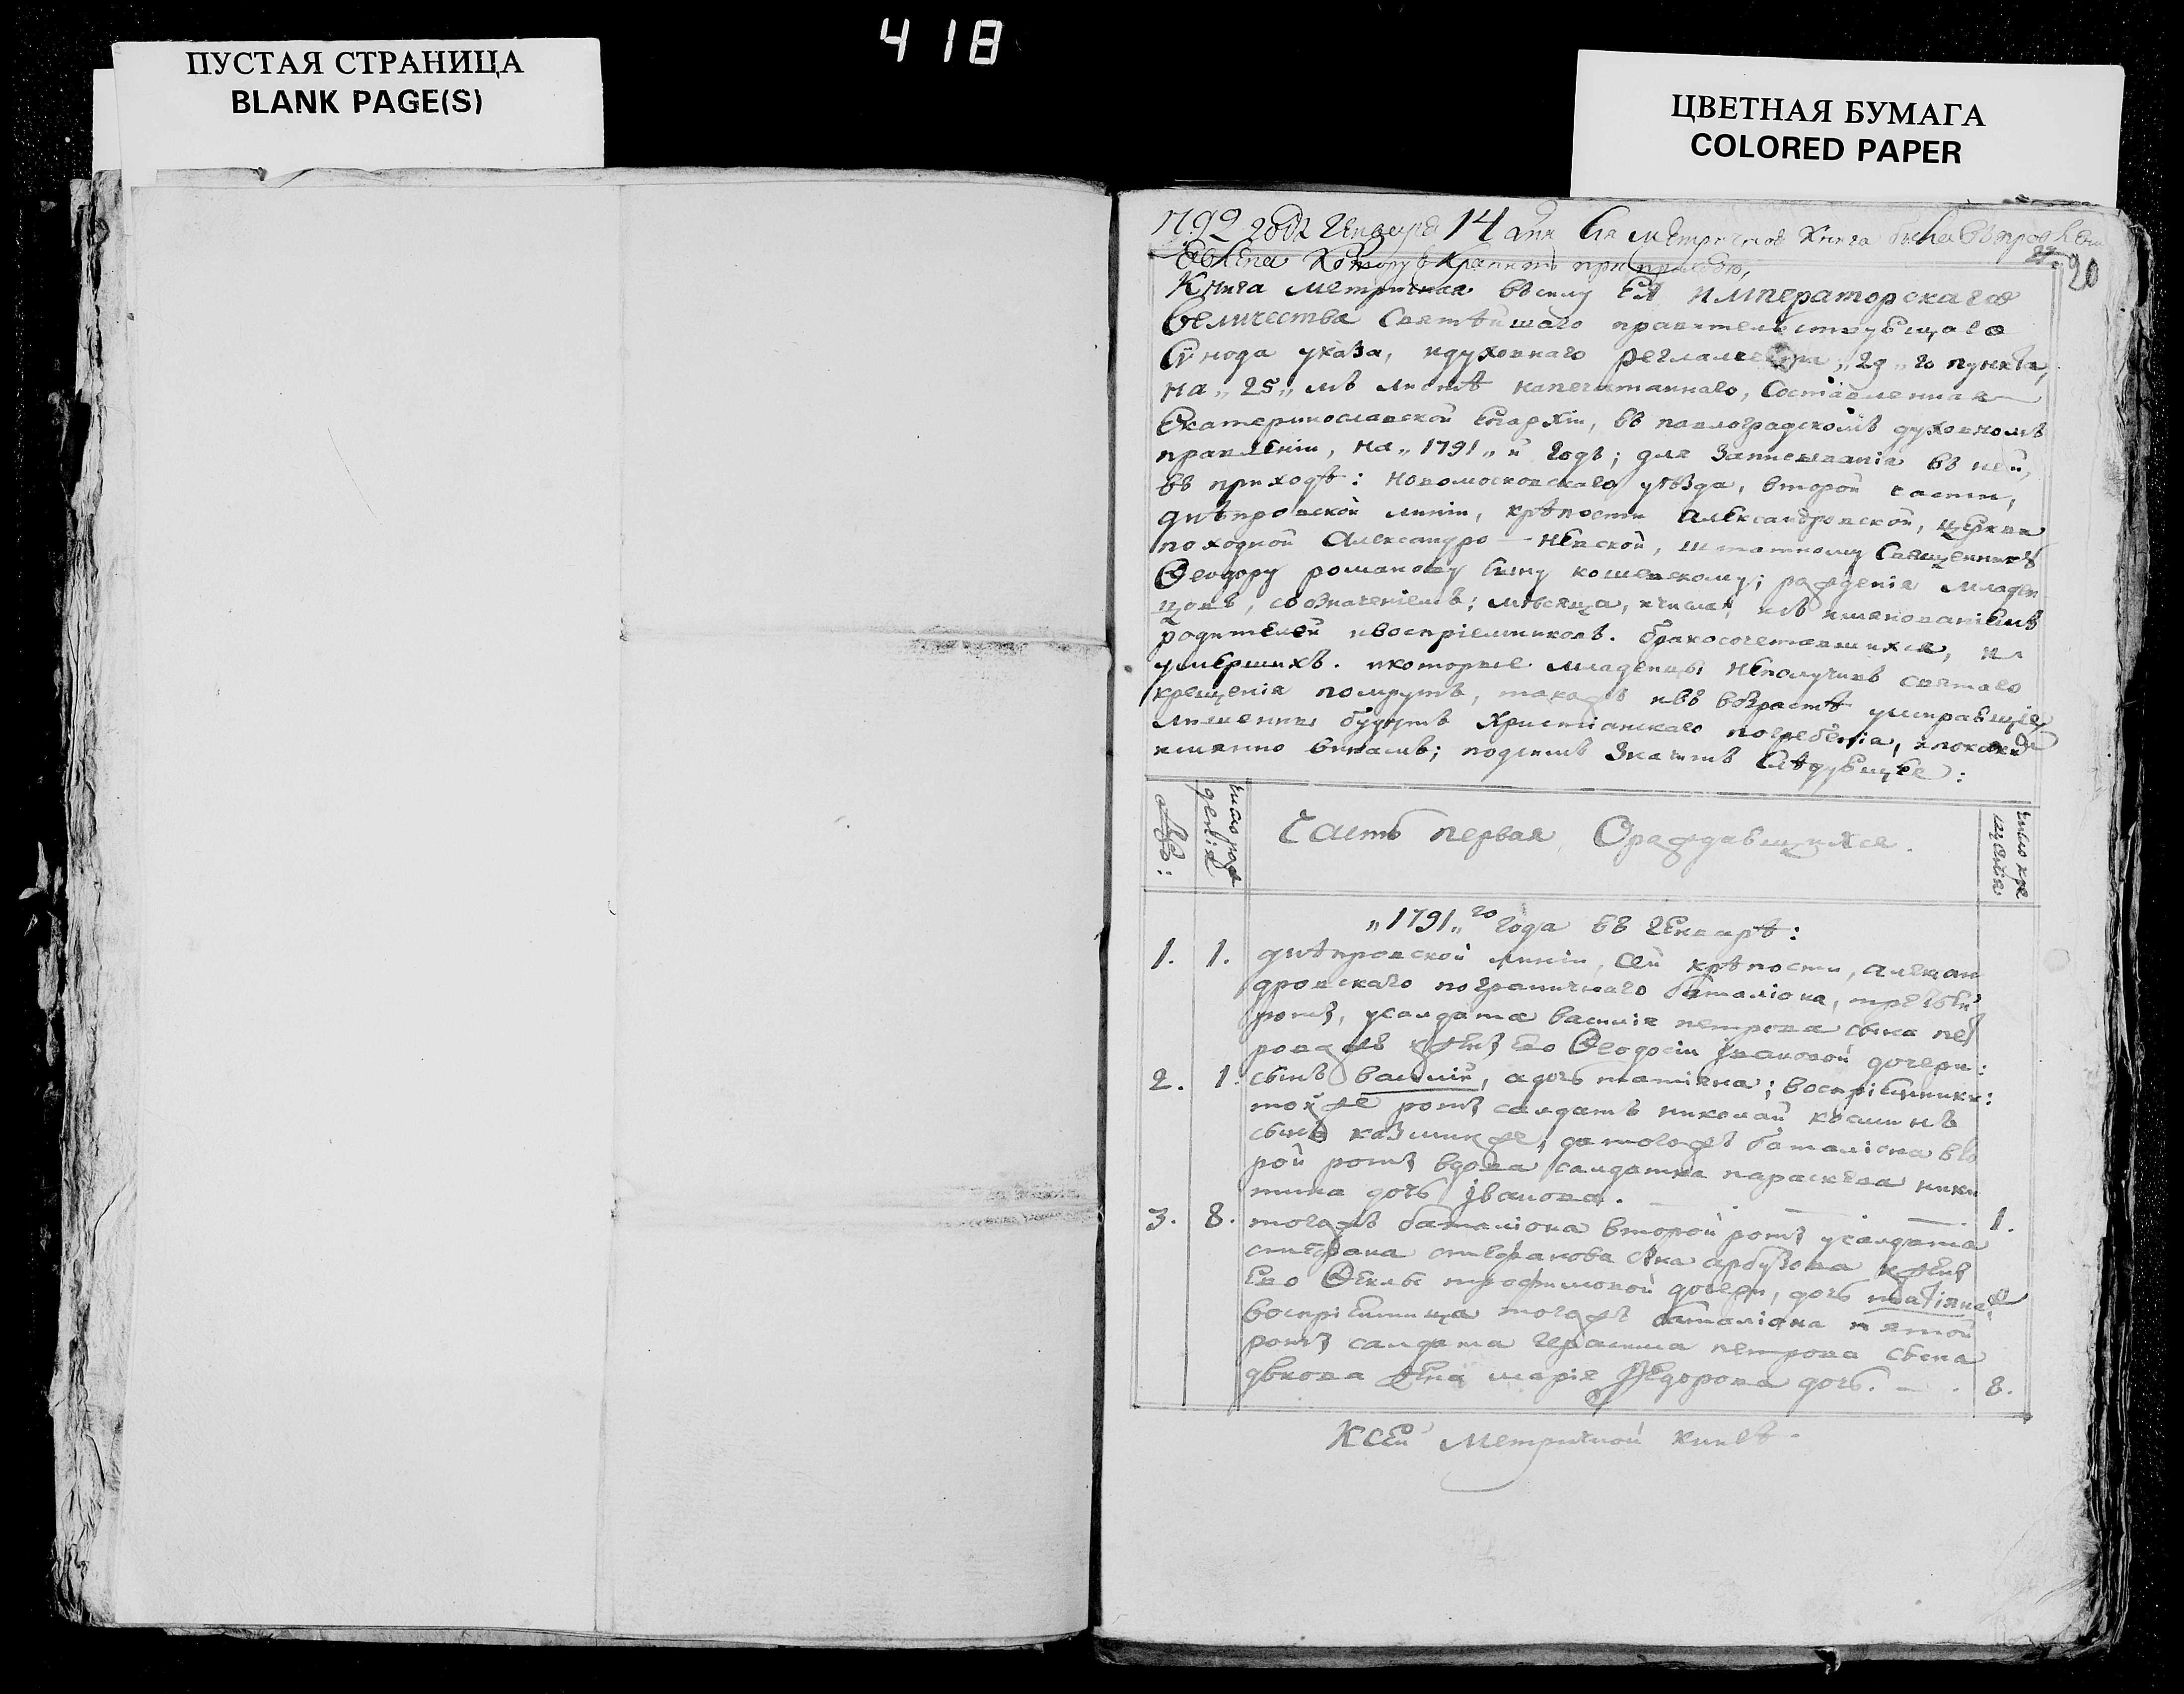 418
ПУСТАЯ СТРАНИЦА
BLANK PAGE(S)
ЦВЕТНАЯ БУМАГА
COLORED PAPER
1792 года Генваря 14 дня Сія метричная книга
20
Книга метричная въсилу Ея императорскаго
величества Святѣйшаго правительствующаго
Сѵнода указа, идуховнаго регламента „29„ го пункта,
на „25„ мъ листѣ напечатаннаго, Составленная
Екатеринославской Епархіи, въ павлоградскомъ духовномъ
правленіи, на „1791„ й годъ; для Записыванія въ ней,
въ приходѣ: новомосковскаго уѣзда, второй части,
днѣпровской линіи, крѣпости александровской, церкви
походной Александро-Невской, штатному Священнику
Ѳеодору романову сыну кошевскому; рожденія младен
цовъ, собзначеніемъ; мѣсяца, ичисла, исъ имянованіемъ
родителей ивоспріемниковъ. бракосочетавшихся, и
умершихъ. икоторые младенцы неполучивъ святаго
крещенія помрутъ, такожъ ивъ возрастѣ умиравщіе
лишенны будутъ Христіанскаго погребенія, и
имянно винамъ; подсимъ Значитъ Слѣдующее:
число рож
денія
Часть первая Ораждавшихся.
число кре
щенія
„1791„ го года въ Генварѣ:
1. 1. днѣпровской линіи, Сей крѣпости, алексан
дровскаго пограничнаго баталіона, третьей
роты, усалдата василія петрова сына пет
рова жъ жены ево Ѳеодосіи Ивановой дочери:
2. 1. сынъ василій, адочь татіяна; воспріемники:
той же роты салдатъ николай косминъ
сынъ казминже; датогожъ баталіона вто
рой роты вдова салдатка параскева ники
тина дочь Иванова.
1.
3. 8. тогожъ баталіона второй роты усалдата
стефана стефанова сна арбузова жены
ево Ѳеклы трофимовой дочери, дочь татіяна;
воспріемница тогожъ баталіона пятой
роты салдата герасима петрова сына
дьякова жена марія Ѳедорова дочь. 8.
Ксей метричной книгѣ